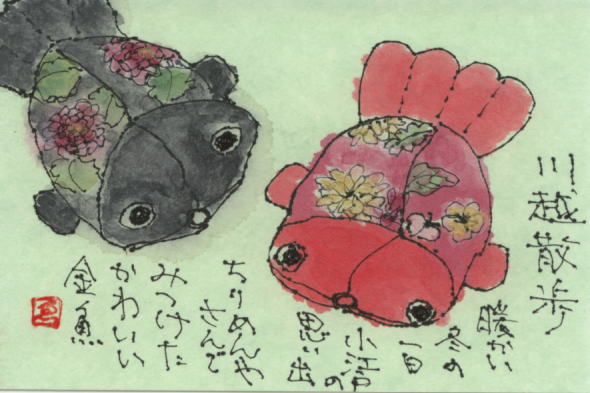 三越散歩
暖かい
冬の
一日
の
思い出
ちりめんや
さんで
みつけた
かわいい
金魚